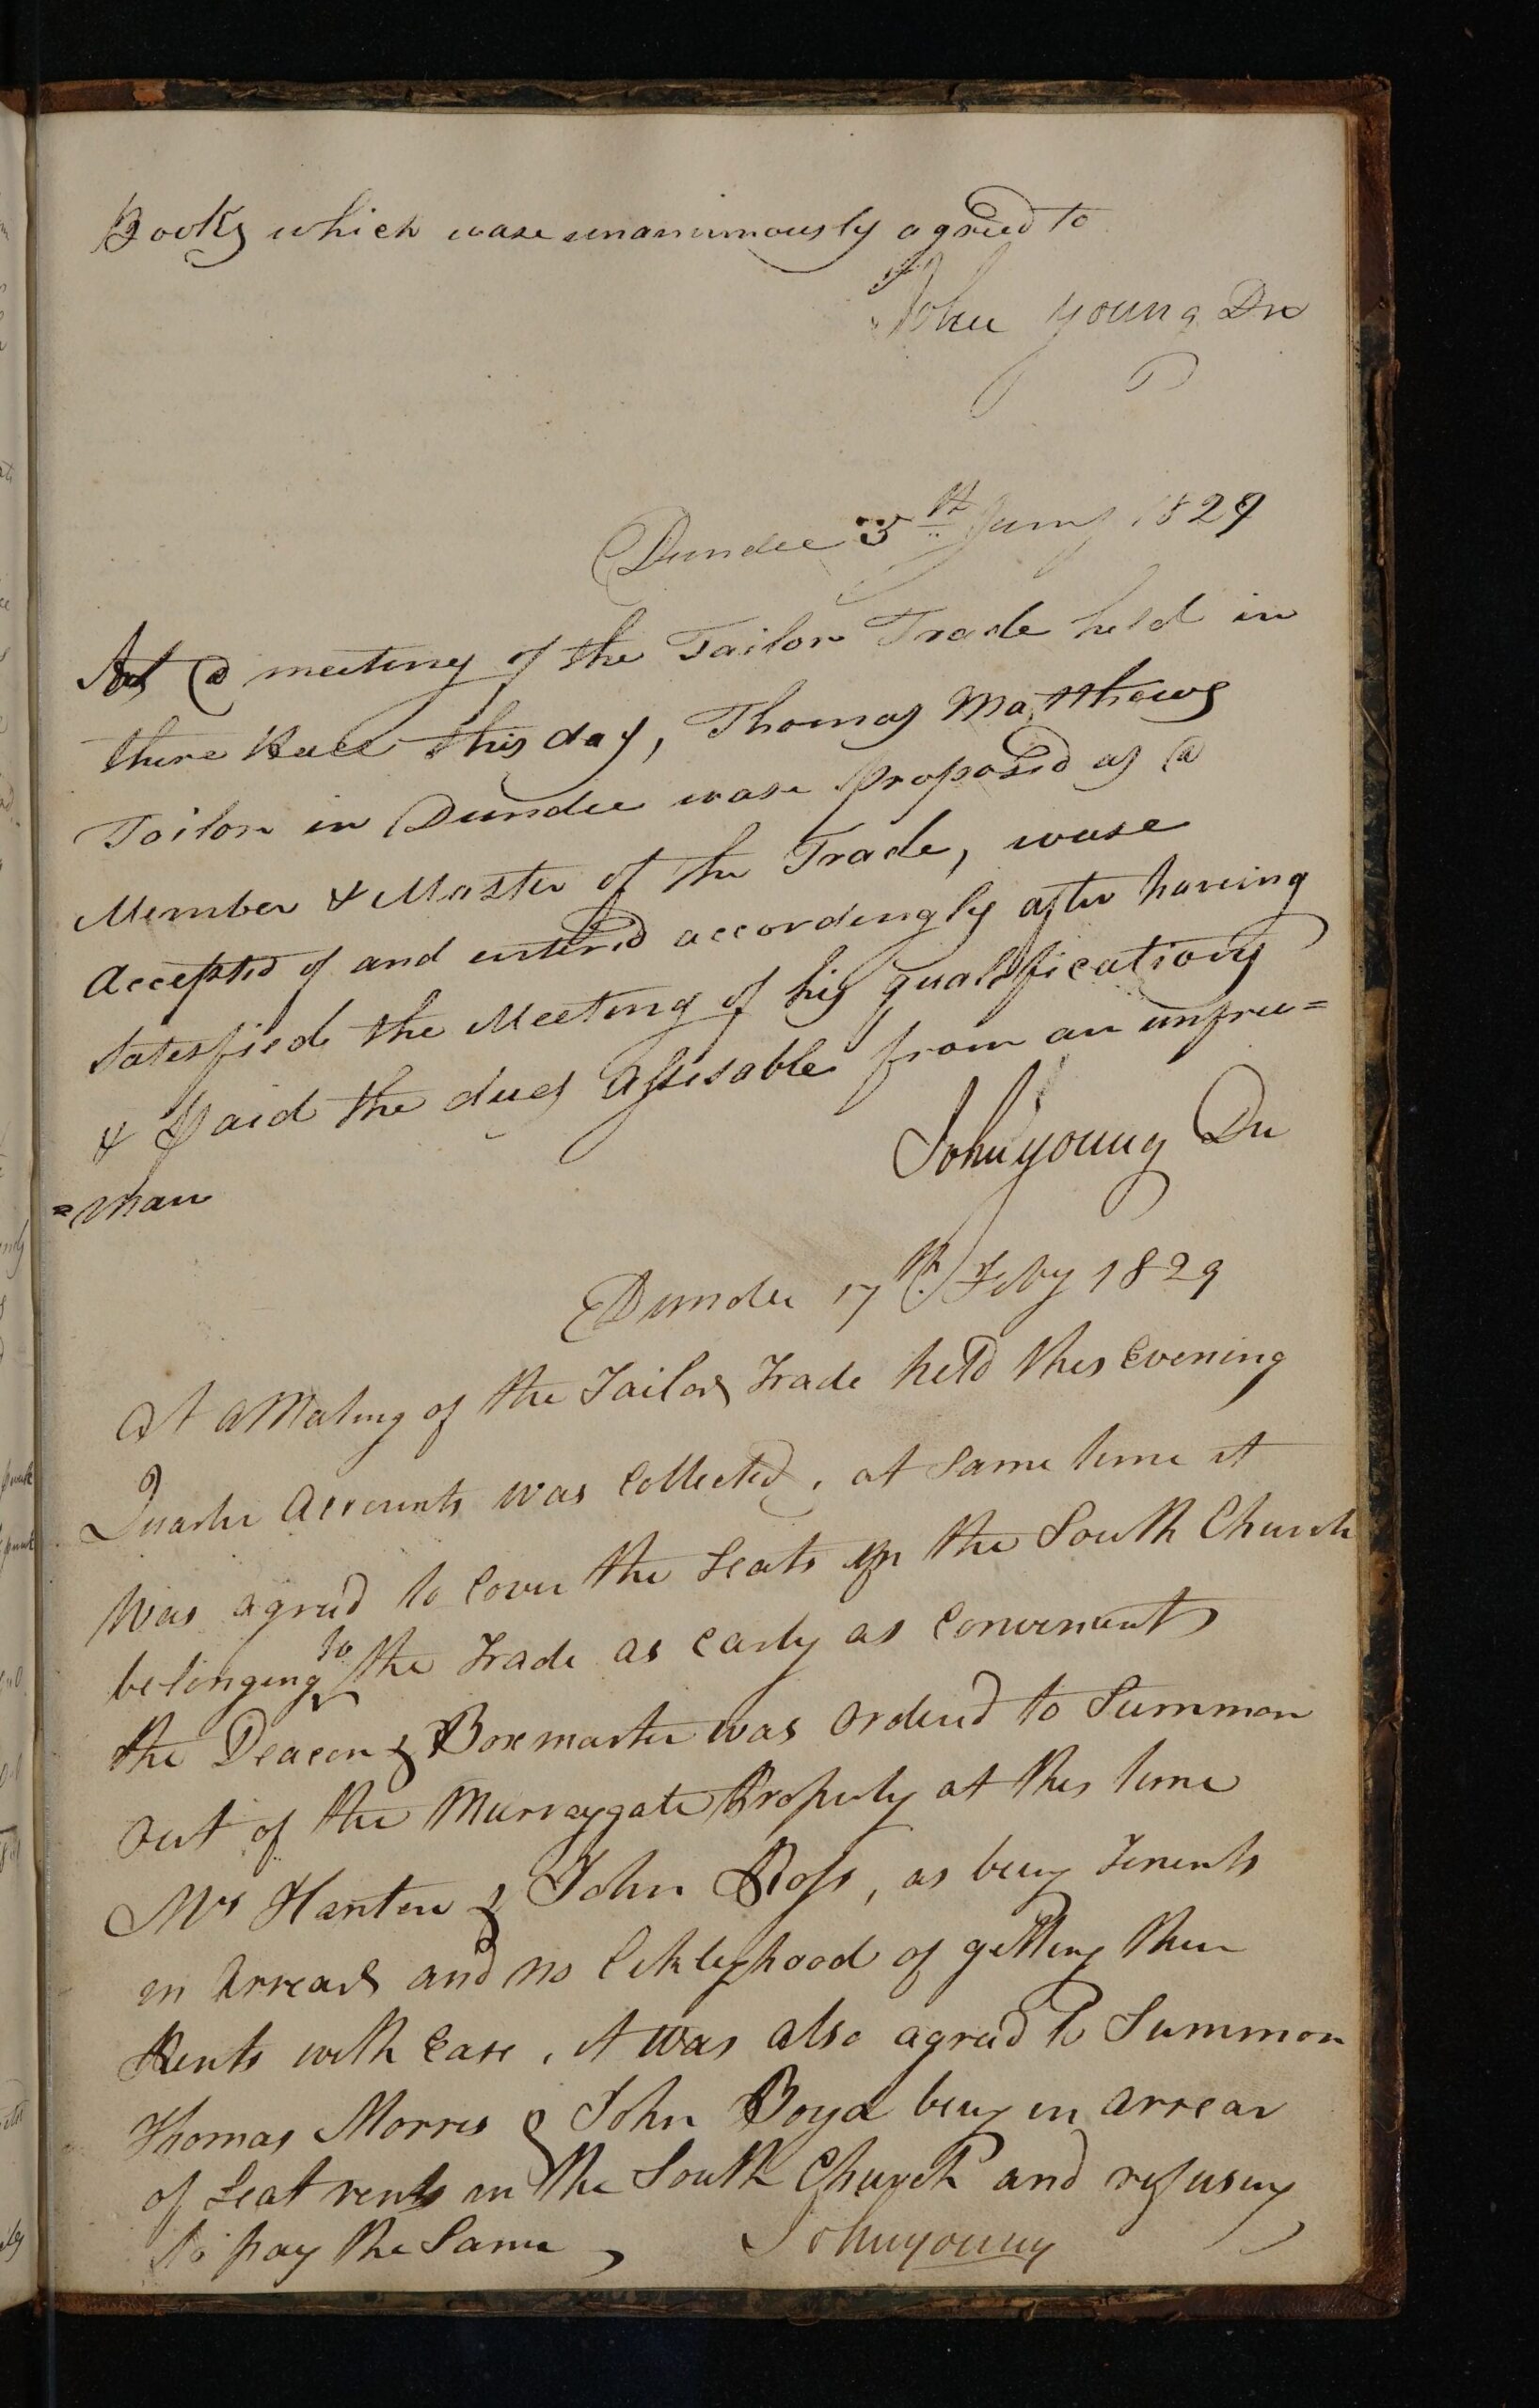 Books which wase unanimously agreed to
John young Dn
Dundee 5th Jany 1829
At a meeting of the Tailor Trade held in
there Hall this day, Thomas Matthews
Tailor in Dundee wase proposed as a
Member & Master of the Trade, wase
Accepted of and entered accordingly after haveing
Satesfied the Meeting of his qualification
& Paid the dues Assisable from an unfree=
=man
John young Dn
Dundee 17th Feby 1829
At a Meeting of the Tailors Trade held this Evening
Quarter Accounts was Collected, at Same time it
Was agreed to Cover the Seats in the South Church
belonging to the Trade as early as Convenient
the Deacon & Boxmaster was ordered to Summon
out of the Murraygate Property at this time
Mrs Hanton & John Ross, as being Tenents
in Arrears and no Liklyhood of getting their
Rents with Ease, it was also agreed to Summon
Thomas Morris & John Boyd being in arrear
of Seat rents in the South Church and refusing
to pay the Same
John young